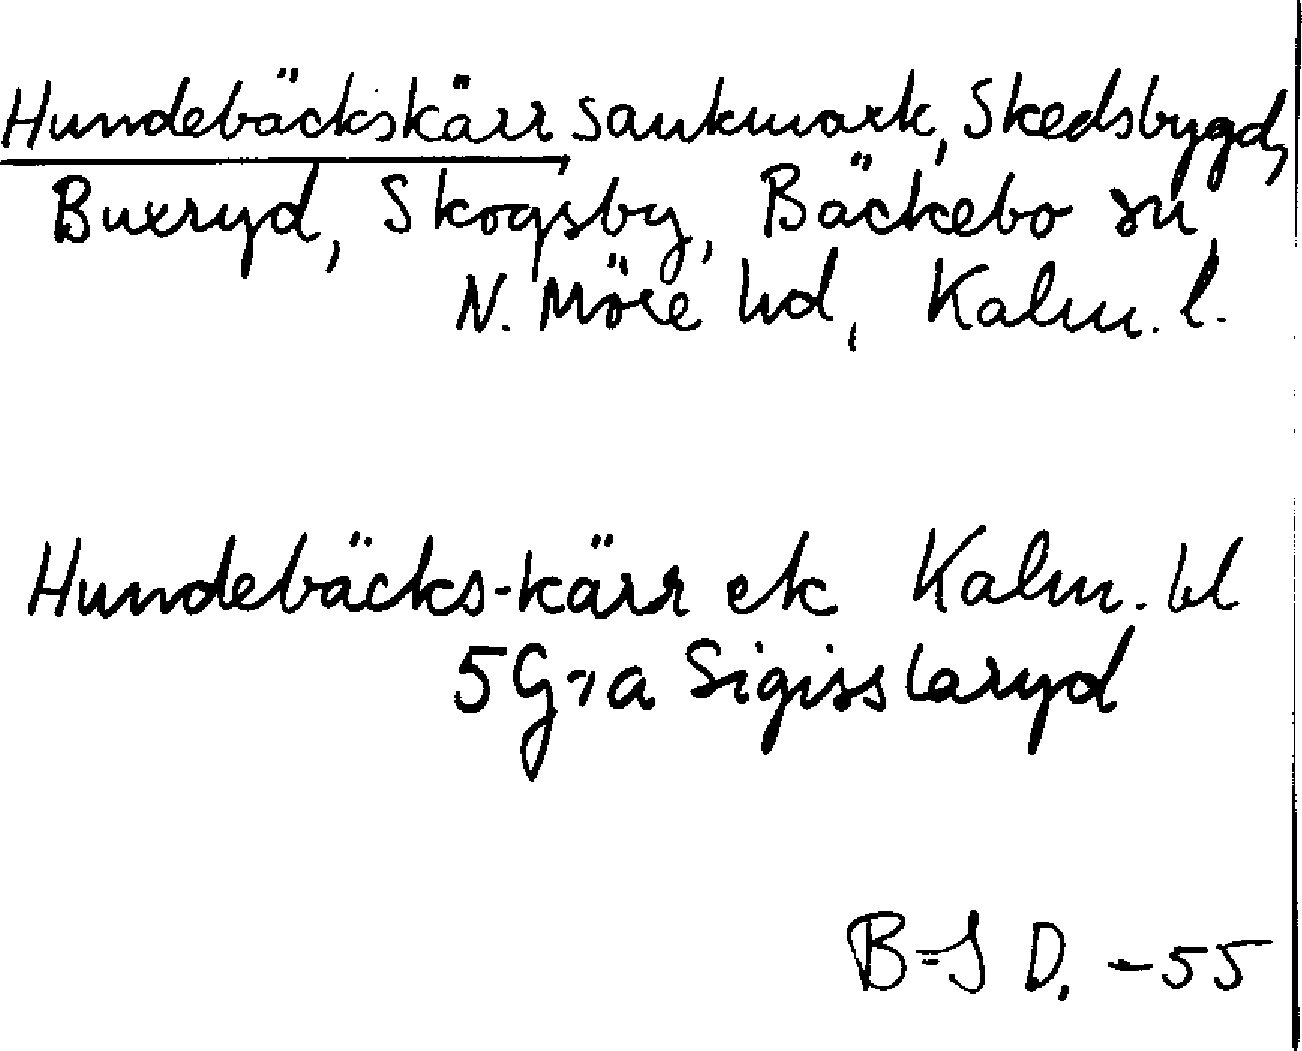 Hundebäckskärr, sankmark, Skedsbygd,
Buxryd, Skogsby, Bäckebo sn,
N. Möre hd, Kalm. l.
Hundebäcks-kärr ek Kalm. bl
5 G7a Sigisslaryd
B=J D. -55